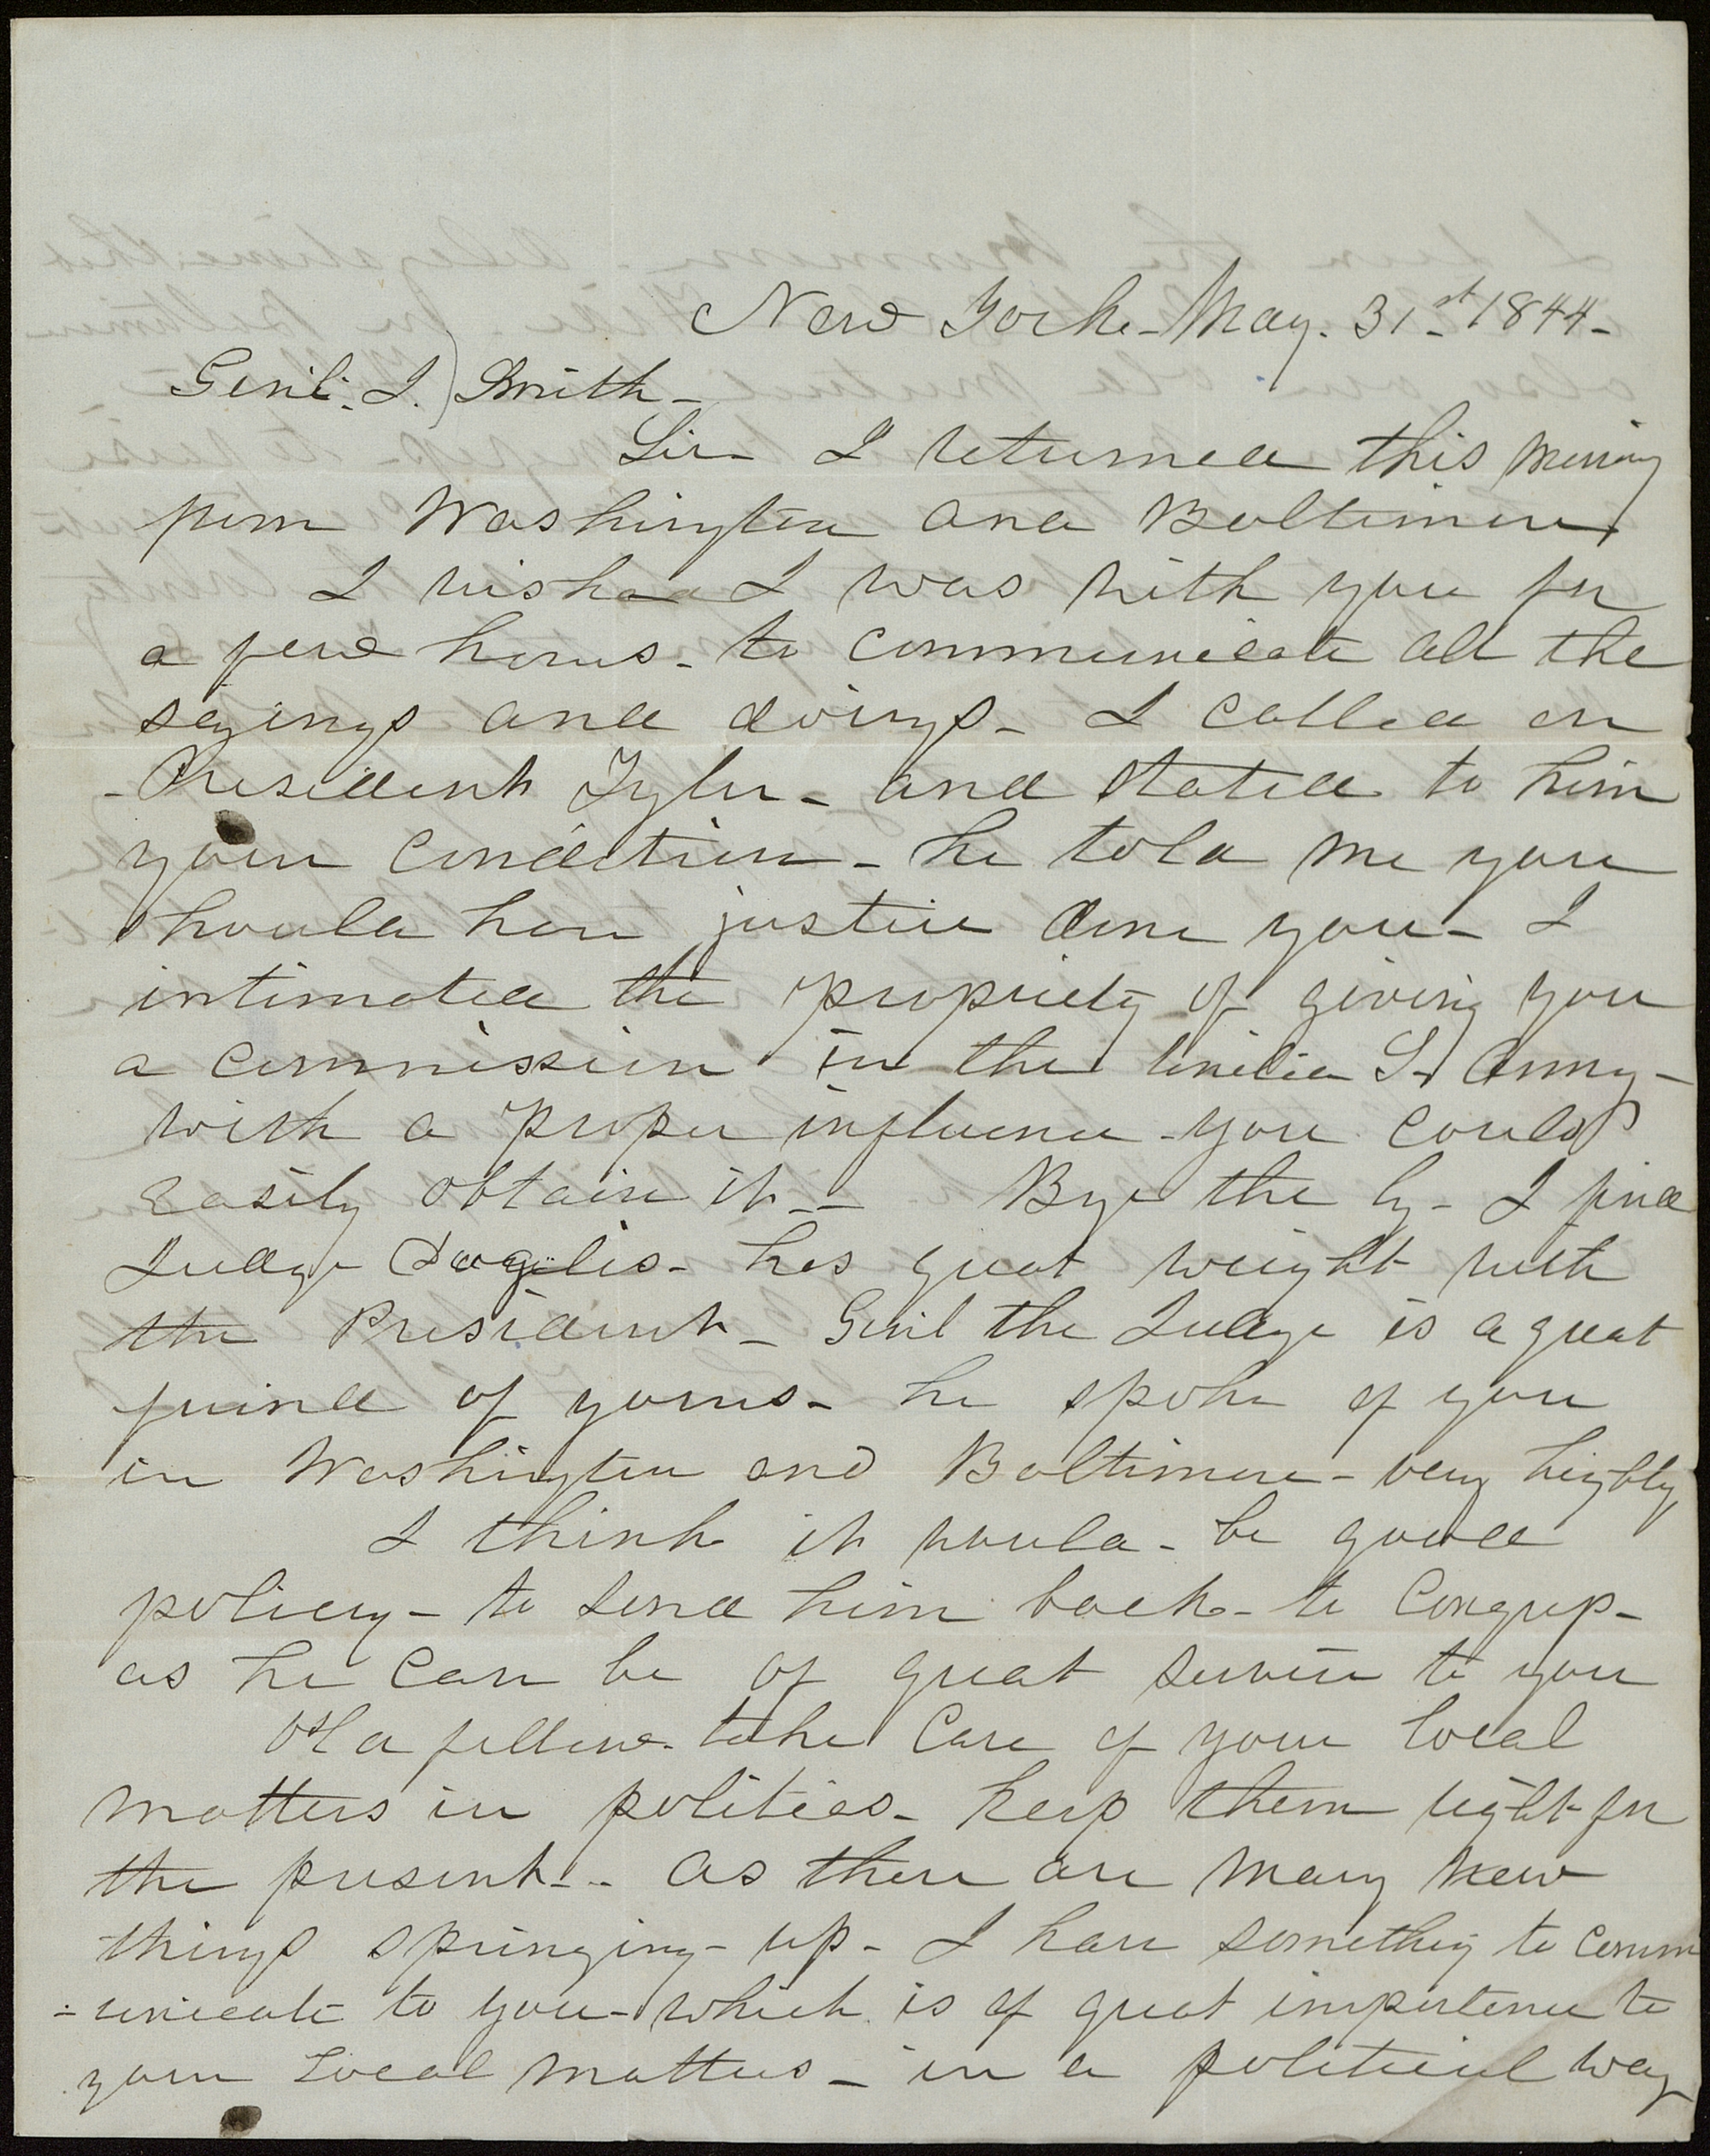 New York - May. 31st 1844 -
Genl. J. Smith -
Sir - I returned this morning
from Washington and Baltimore
I wished I was with you for
a few hours - to communicate all the
sayings and doings - I called on
- President Tyler - and stated to him
your condition - he told me you
should have justice done you - I
intimated the propriety of giving you
a commission in the United S. Army -
with a proper influence - you could
easily obtain it -- Bye the by - I find
Judge Duglis - has great weight with
the President - Genl the Judge is a great
friend of yours - he spoke of you
in Washington and Baltimore - very highly
I think it would - be good
policy - to send him back - to Congress -
as he can be of great service to you
Old fellow - take care of your local
matters in politics - keep them right for
the present -- as there are many new
things springing - up - I have something to comm
- unicate to you - which is of great importance to
your local matters - in a political way